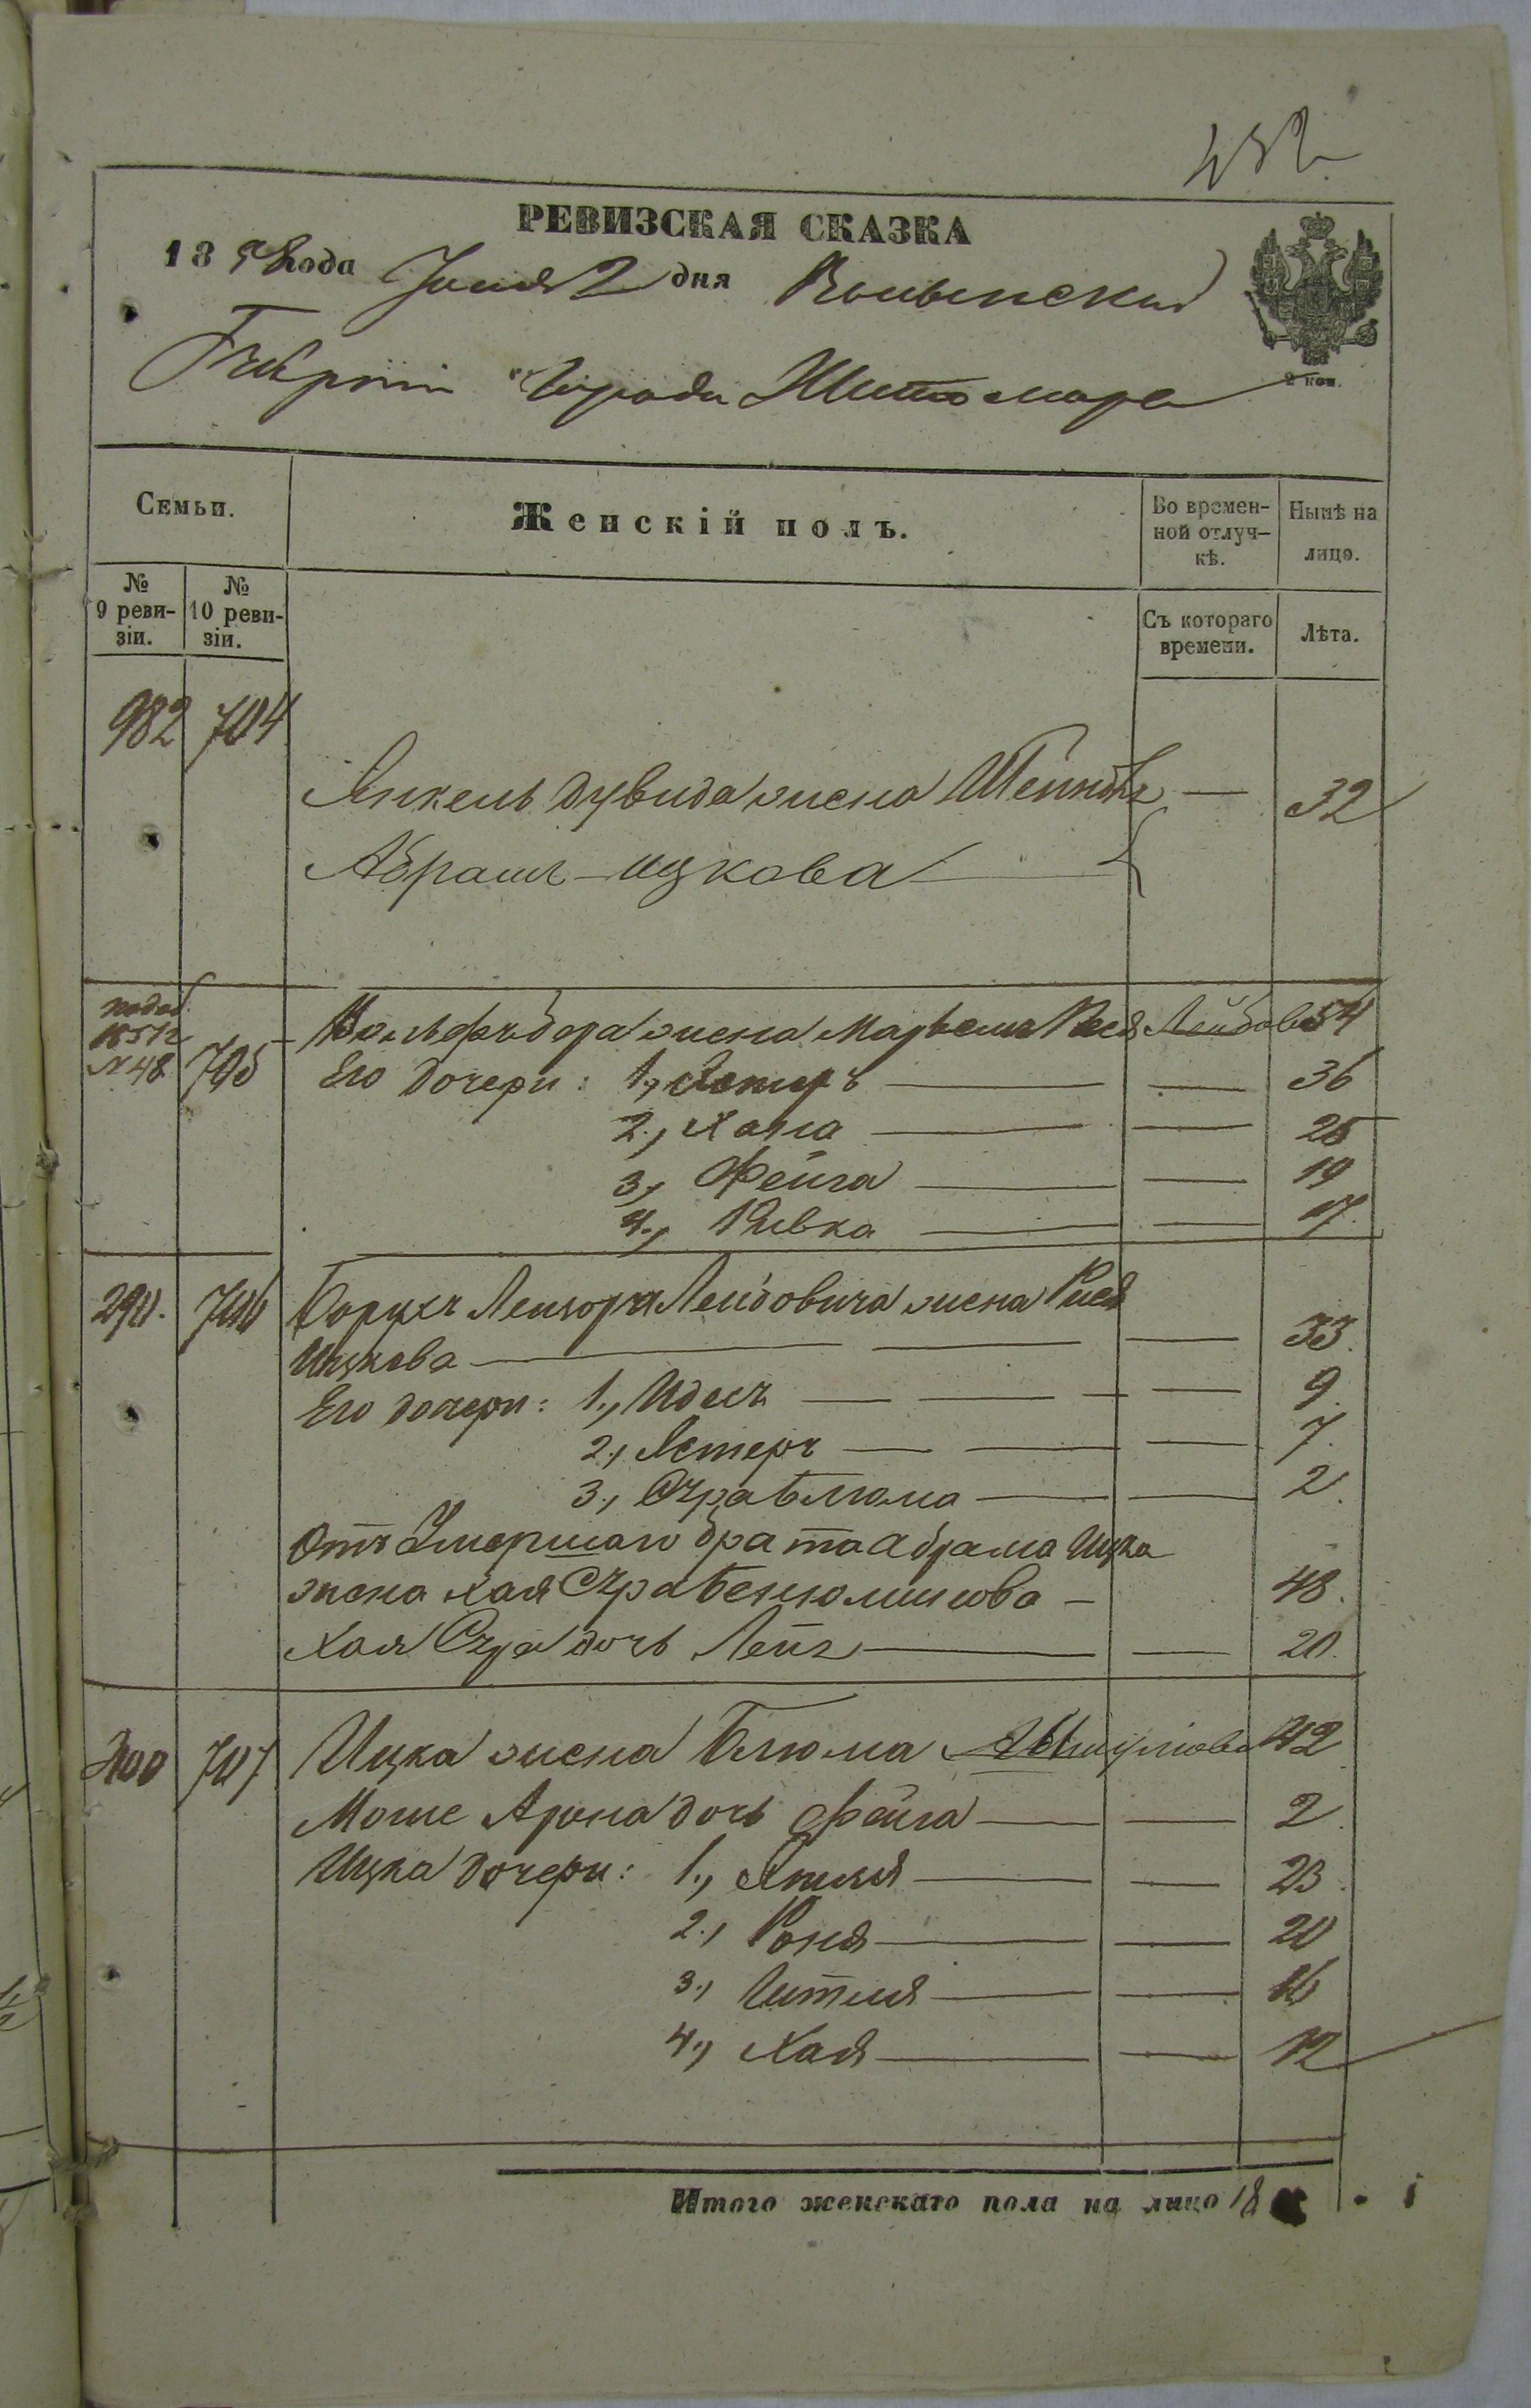 432
РЕВИЗСКАЯ СКАЗКА
1858 года Июня 2 дня Волынской
Губернiи Города Житомира
2 коп.
Семьи.
Женскій полъ.
Во времен-
ной отлуч-
кѣ.
Нынѣ на
лицо.
№
9 реви-
зіи.
№
10 реви-
зіи.
Съ котораго
времени.
Лѣта.
982 704
Янкель Дувида жена Шейндля — 32
Абрамъ-Ицкова
1851
№ 48 705
жена Марьема Лейбова 54
Его дочери: 1., 36
2., Хана 25
3., Фейга 19
4., Ривка 17
290. 706 Борухъ Лейзора Лейбовича жена Рися
Ицкова 33.
Его дочери: 1., Идесъ 9.
2., Эстеръ 7.
3., Сура Блюма 2.
Отъ Умершаго брата Абрама Ицка
жена Хая Сура Бенюминова — 48.
Хая Сура дочь Лея 20.
400 707 Ицка жена Блюма 42
Мошe Арона дочь Фейга 2.
Ицка дочери: 1., 23.
2., Роня 20
3., Гитля 16
4., Хая 12
Итого женскаго пола на лицо 18